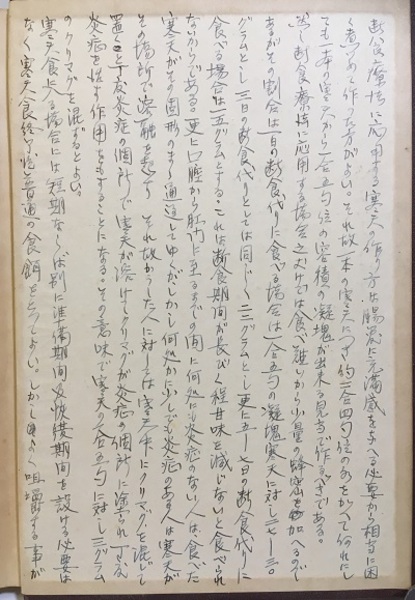 断食療法に応用する寒天の作り方は腸管に充満感を与へる必要から相当に固
く煮つめて作った方がよい。それ故一本の寒天につき約二合四勺位の水を加へて何れにし
ても一本の寒天から一合五勺位の容積の凝塊が出来る見当で作るべきである。
然し断食療法に応用する場合之だけでは食べ難いから少量の蜂蜜を加へるのが
あるがその割合は一日の断食代りに食べる場合は一合五勺の凝塊寒天に対し二七—三〇
グラムとし三日の断食代りとしては同じく二三グラムとし更に五—七日の断食代りに
食べる場合は一五グラムとする。これは断食期間が長びく程甘味を減じないと食べられ
ないからである。更に口腔から肛門に至るまでの間に何処にも炎症のない人は食べた
寒天がその固形のまゝ通過してゆくがしかし何処かに少しでも炎症のある人は寒天が
その場所で溶融を起す。それ故かゝる人に対しては寒天中にクリマグを混じて
置くと丁度炎症の個所で寒天が溶けてクリマグが炎症の個所に塗られ丁度
炎症を治す作用をもすることになる。その意味で寒天一合五勺に対し三グラム
のクリマグを混ずるとよい。
寒天食より入る場合には短期ならば別に準備期間及恢復期間を設ける必要は
なく寒天食終了後普通の食餌をとってよい。しかしよく咀嚼する事が